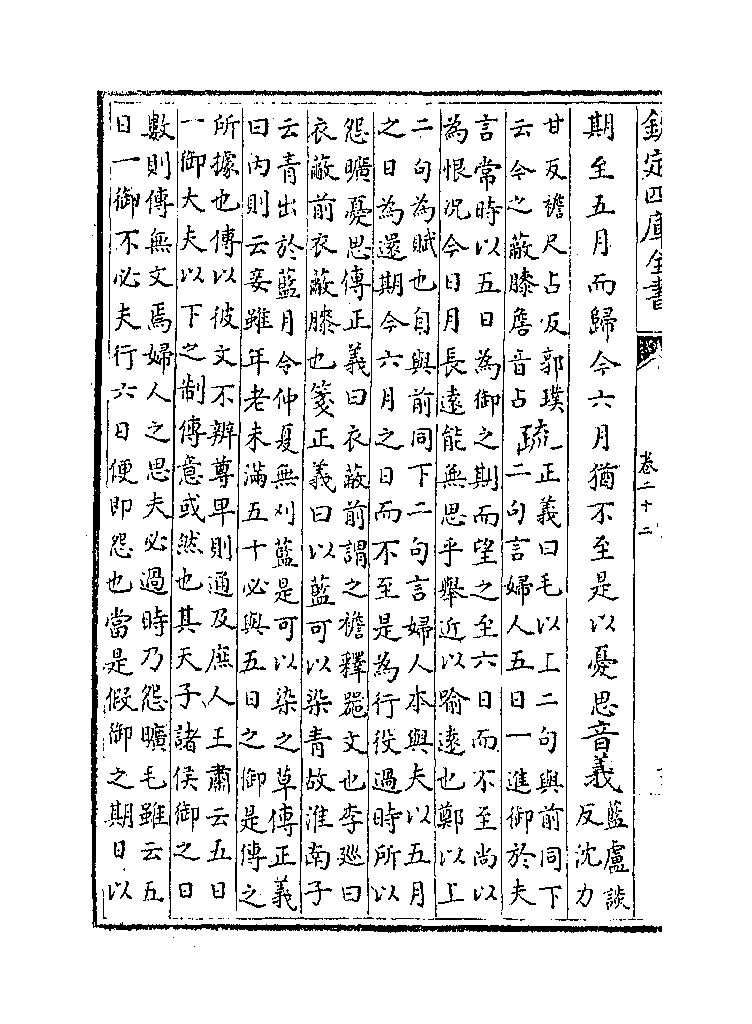 欽定四庫全書
卷二十二
期至五月而歸今六月猶不至是以憂思音義藍盧談
反沈力
甘反襜尺占反郭璞
云今之蔽膝詹音占疏正義曰毛以上二句與前同下
二句言婦人五日一進御於夫
言常時以五日為御之期而望之至六日而不至尚以
為恨況今日月長遠能無思乎舉近以喻遠也鄭以上
二句為賦也自與前同下二句言婦人本與夫以五月
之日為還期今六月之日而不至是為行役過時所以
怨曠憂思傳正義曰衣蔽前謂之襜釋器文也李廵曰
衣蔽前衣蔽膝也箋正義曰以藍可以染青故淮南子
云青出於藍月令仲夏無刈藍是可以染之草傳正義
曰内則云妾雖年老未滿五十必與五日之御是傳之
所據也傳以彼文不辨尊卑則通及庶人王肅云五日
一御大夫以下之制傳意或然也其天子諸侯御之日
數則傳無文焉婦人之思夫必過時乃怨曠毛雖云五
日一御不必夫行六日便即怨也當是假御之期日以